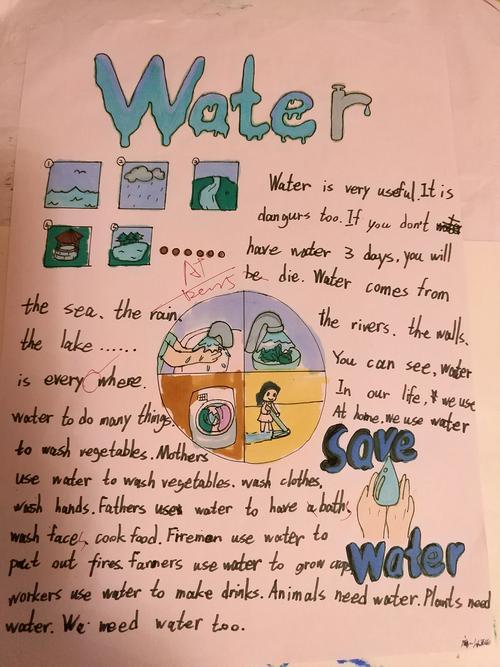 Water
① ② ③
④ ⑤ ......
Water is very useful. It is
dangurs too. If you don't
have water 3 days, you will
be die. Water comes from
the sea. the rain,
the rivers. the walls.
the lake ......
You can see, water
is every where.
In our life, we use
water to do many things.
At home. we use water
to wash vegetables. Mothers
use water to wash vegetables. wash clothes,
wash hands. Fathers uses water to have a bath,
wash face, cook food. Firemen use water to
put out fires. Farmers use water to grow crops
workers use water to make drinks. Animals need water. Plants need
water. We need water too.
Save
Water